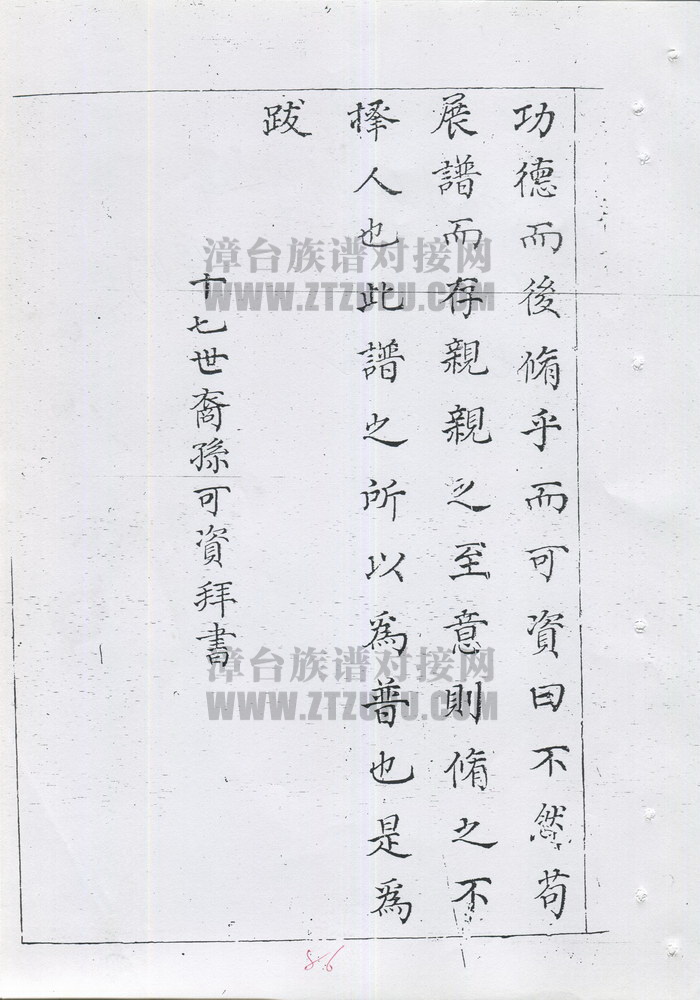 功德而後脩乎而可資曰不然苟
展譜而存親親之至意則脩之不
擇人也此譜之所以為普也是為
跋
十七世裔孫可資拜書
漳台族谱对接网
WWW.ZTZUPU.COM
漳台族谱对接网
WWW.ZTZUPU.COM
86